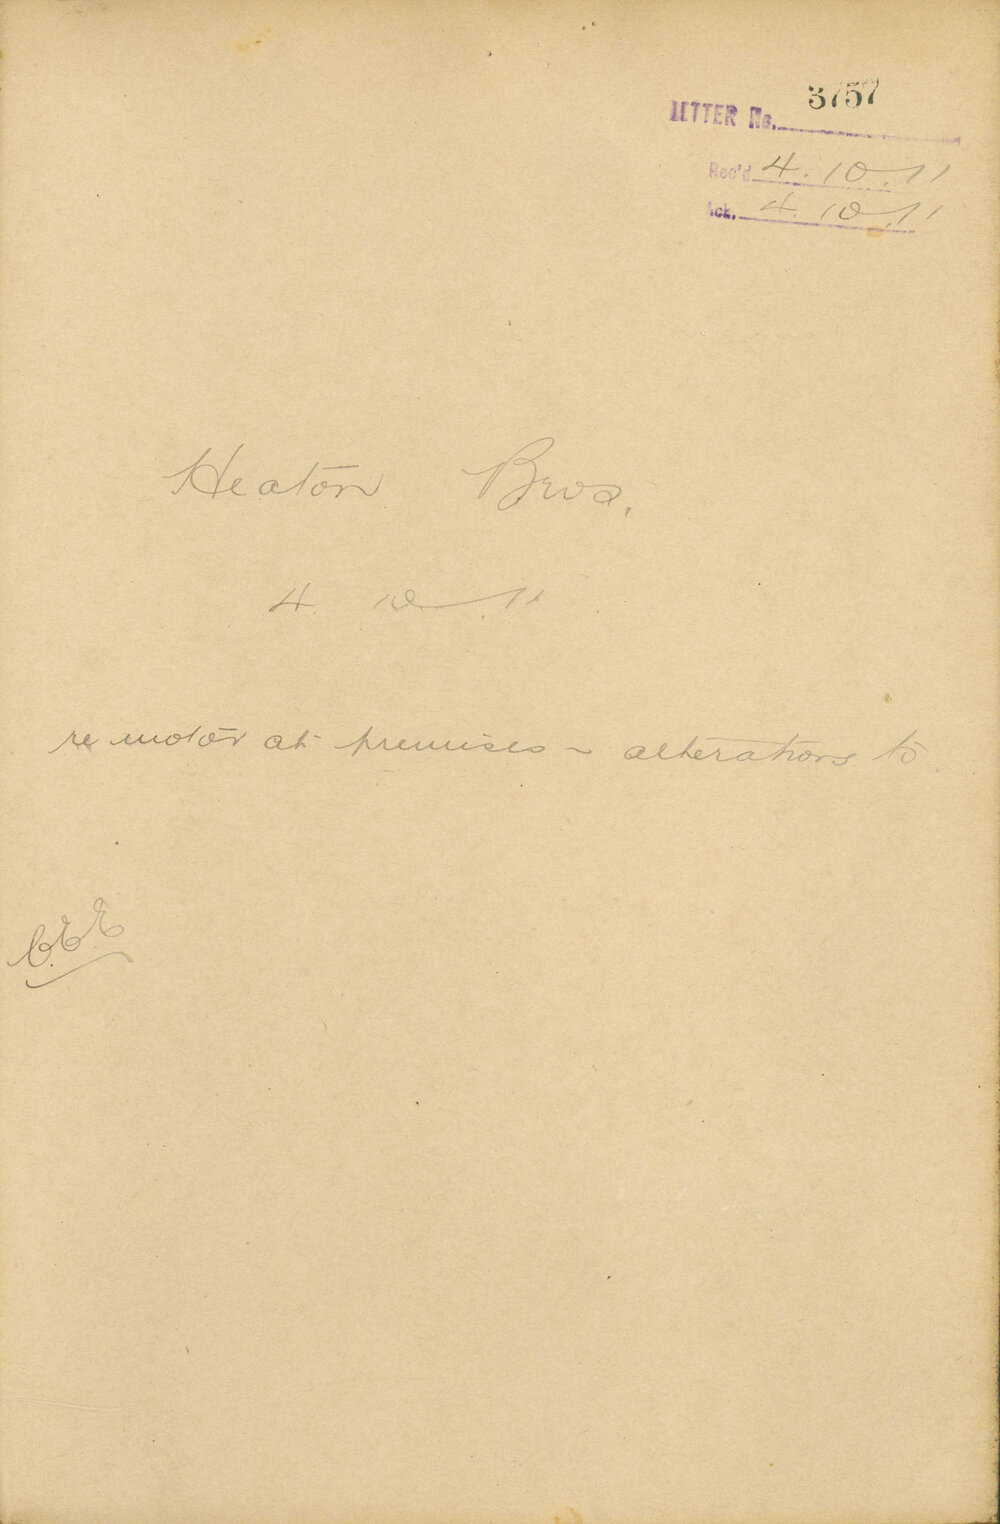 3757
LETTER No.
Rec'd 4.10.11
Ack. 4.10.11
Heaton Bros.
4. 10. 11
re motor at premises ~ alterations to
C.E.E